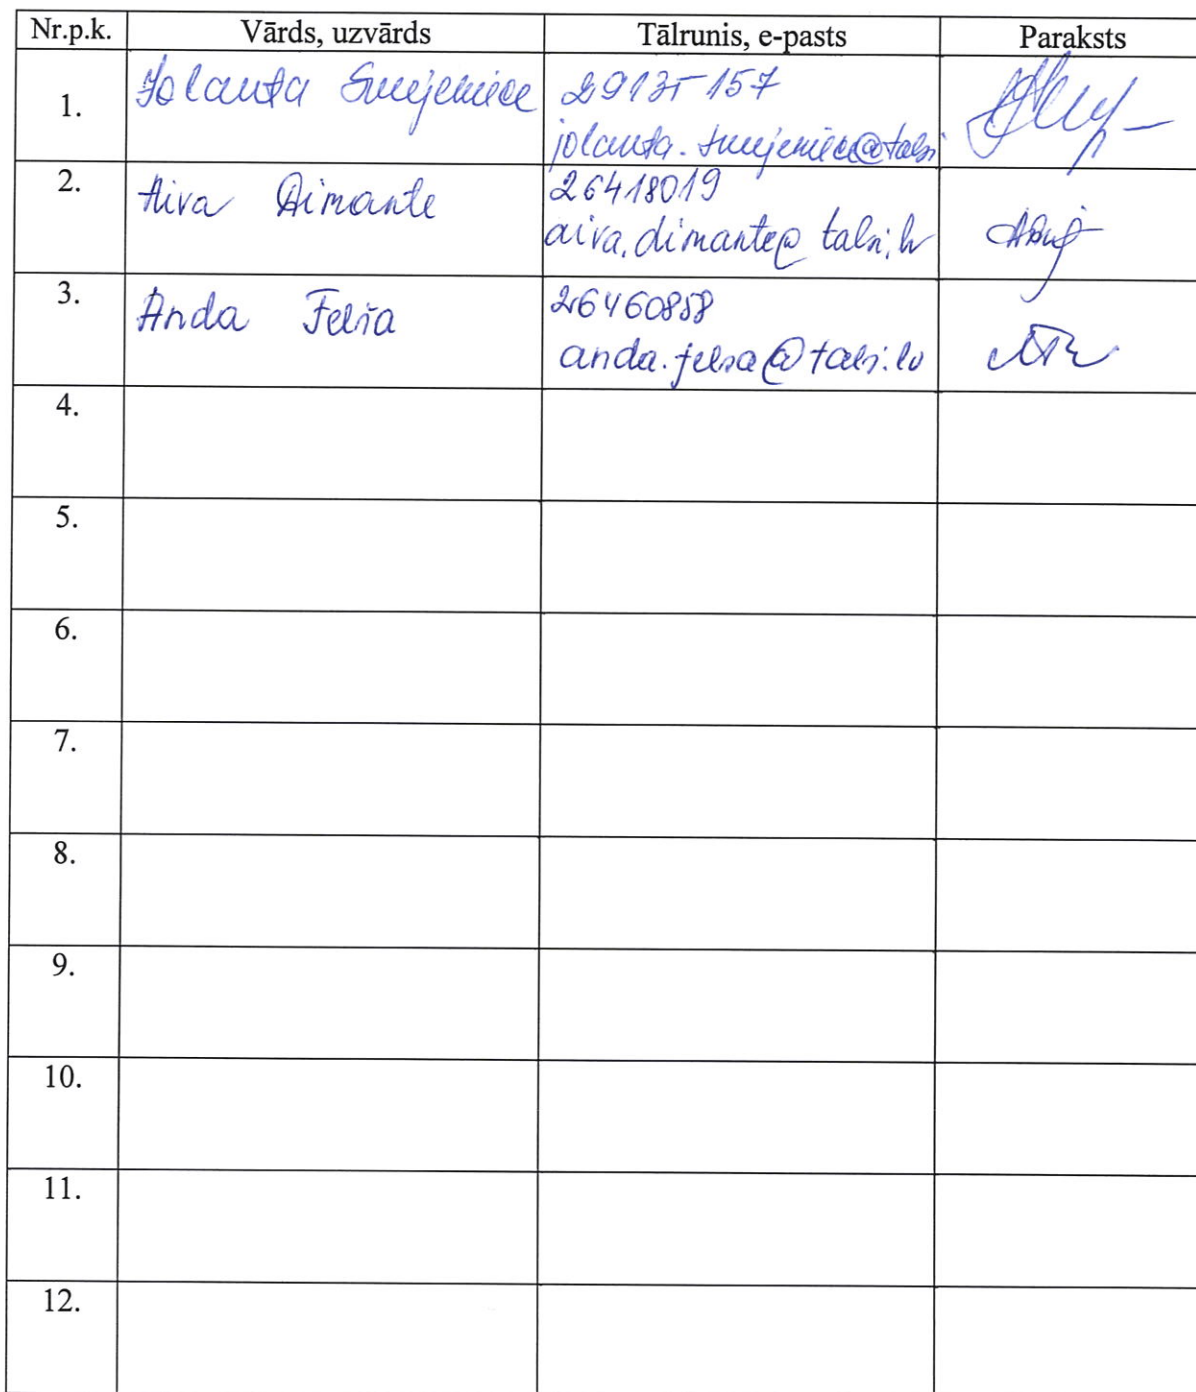 Nr.p.k. Vārds, uzvārds Tālrunis, e-pasts Paraksts
1. Jolanta 29135157
2. Aiva Dimante 26418019
aiva.dimante@talsi.lv
3. Anda Felša 26460858
anda.felsa@talsi.lv
4.
5.
6.
7.
8.
9.
10.
11.
12.